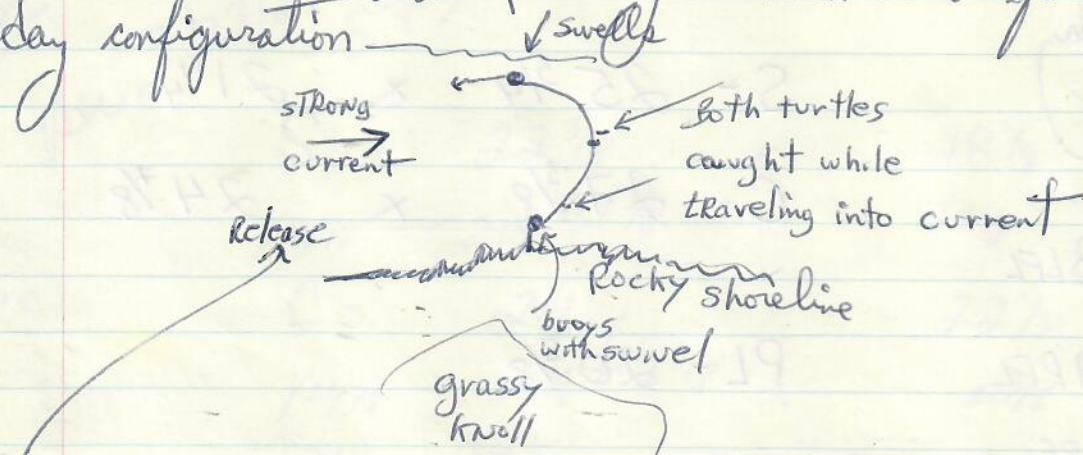 day configuration
swells
strong
current
Both turtles
caught while
traveling into current
Release
Rocky shoreline
buoys
with swivel
grassy
knoll